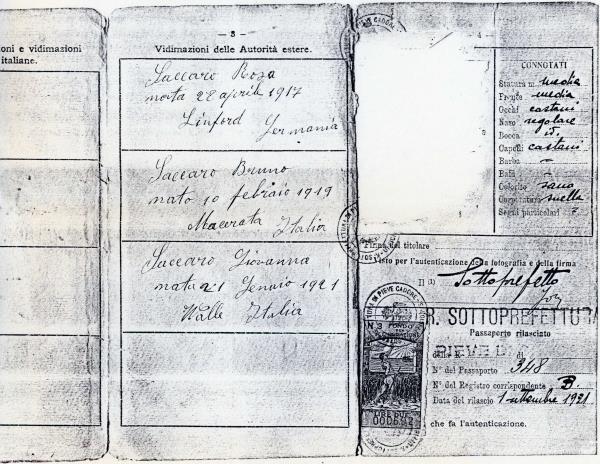 oni e vidimazioni
italiane.
— 3 —
Vidimazioni delle Autorità estere.
Saccaro Rosa
nata 22 aprile 1917
Linford Germania
Saccaro Bruno
nato 10 febraio 1919
Macerata Italia
Saccaro Giovanna
nata 21 Genaio 1921
Valle Italia
4
CONNOTATI
Statura m. media
Fronte media
Occhi castani
Naso regolare
Bocca id.
Capelli castani
Barba –
Baffi –
Colorito sano
Corporatura snella
Segni particolari
Firma del titolare
Visto per l'autenticazione della fotografia e della firma
Il (1) Sottoprefetto
R. SOTTOPREFETTURA
Passaporto rilasciato
PIEVE DI
dalla R. di
N° del Passaporto 348
N° del Registro corrispondente B.
Data del rilascio 1 settembre 1921
che fa l'autenticazione.
N. 3 FONDO
LIRE DUE